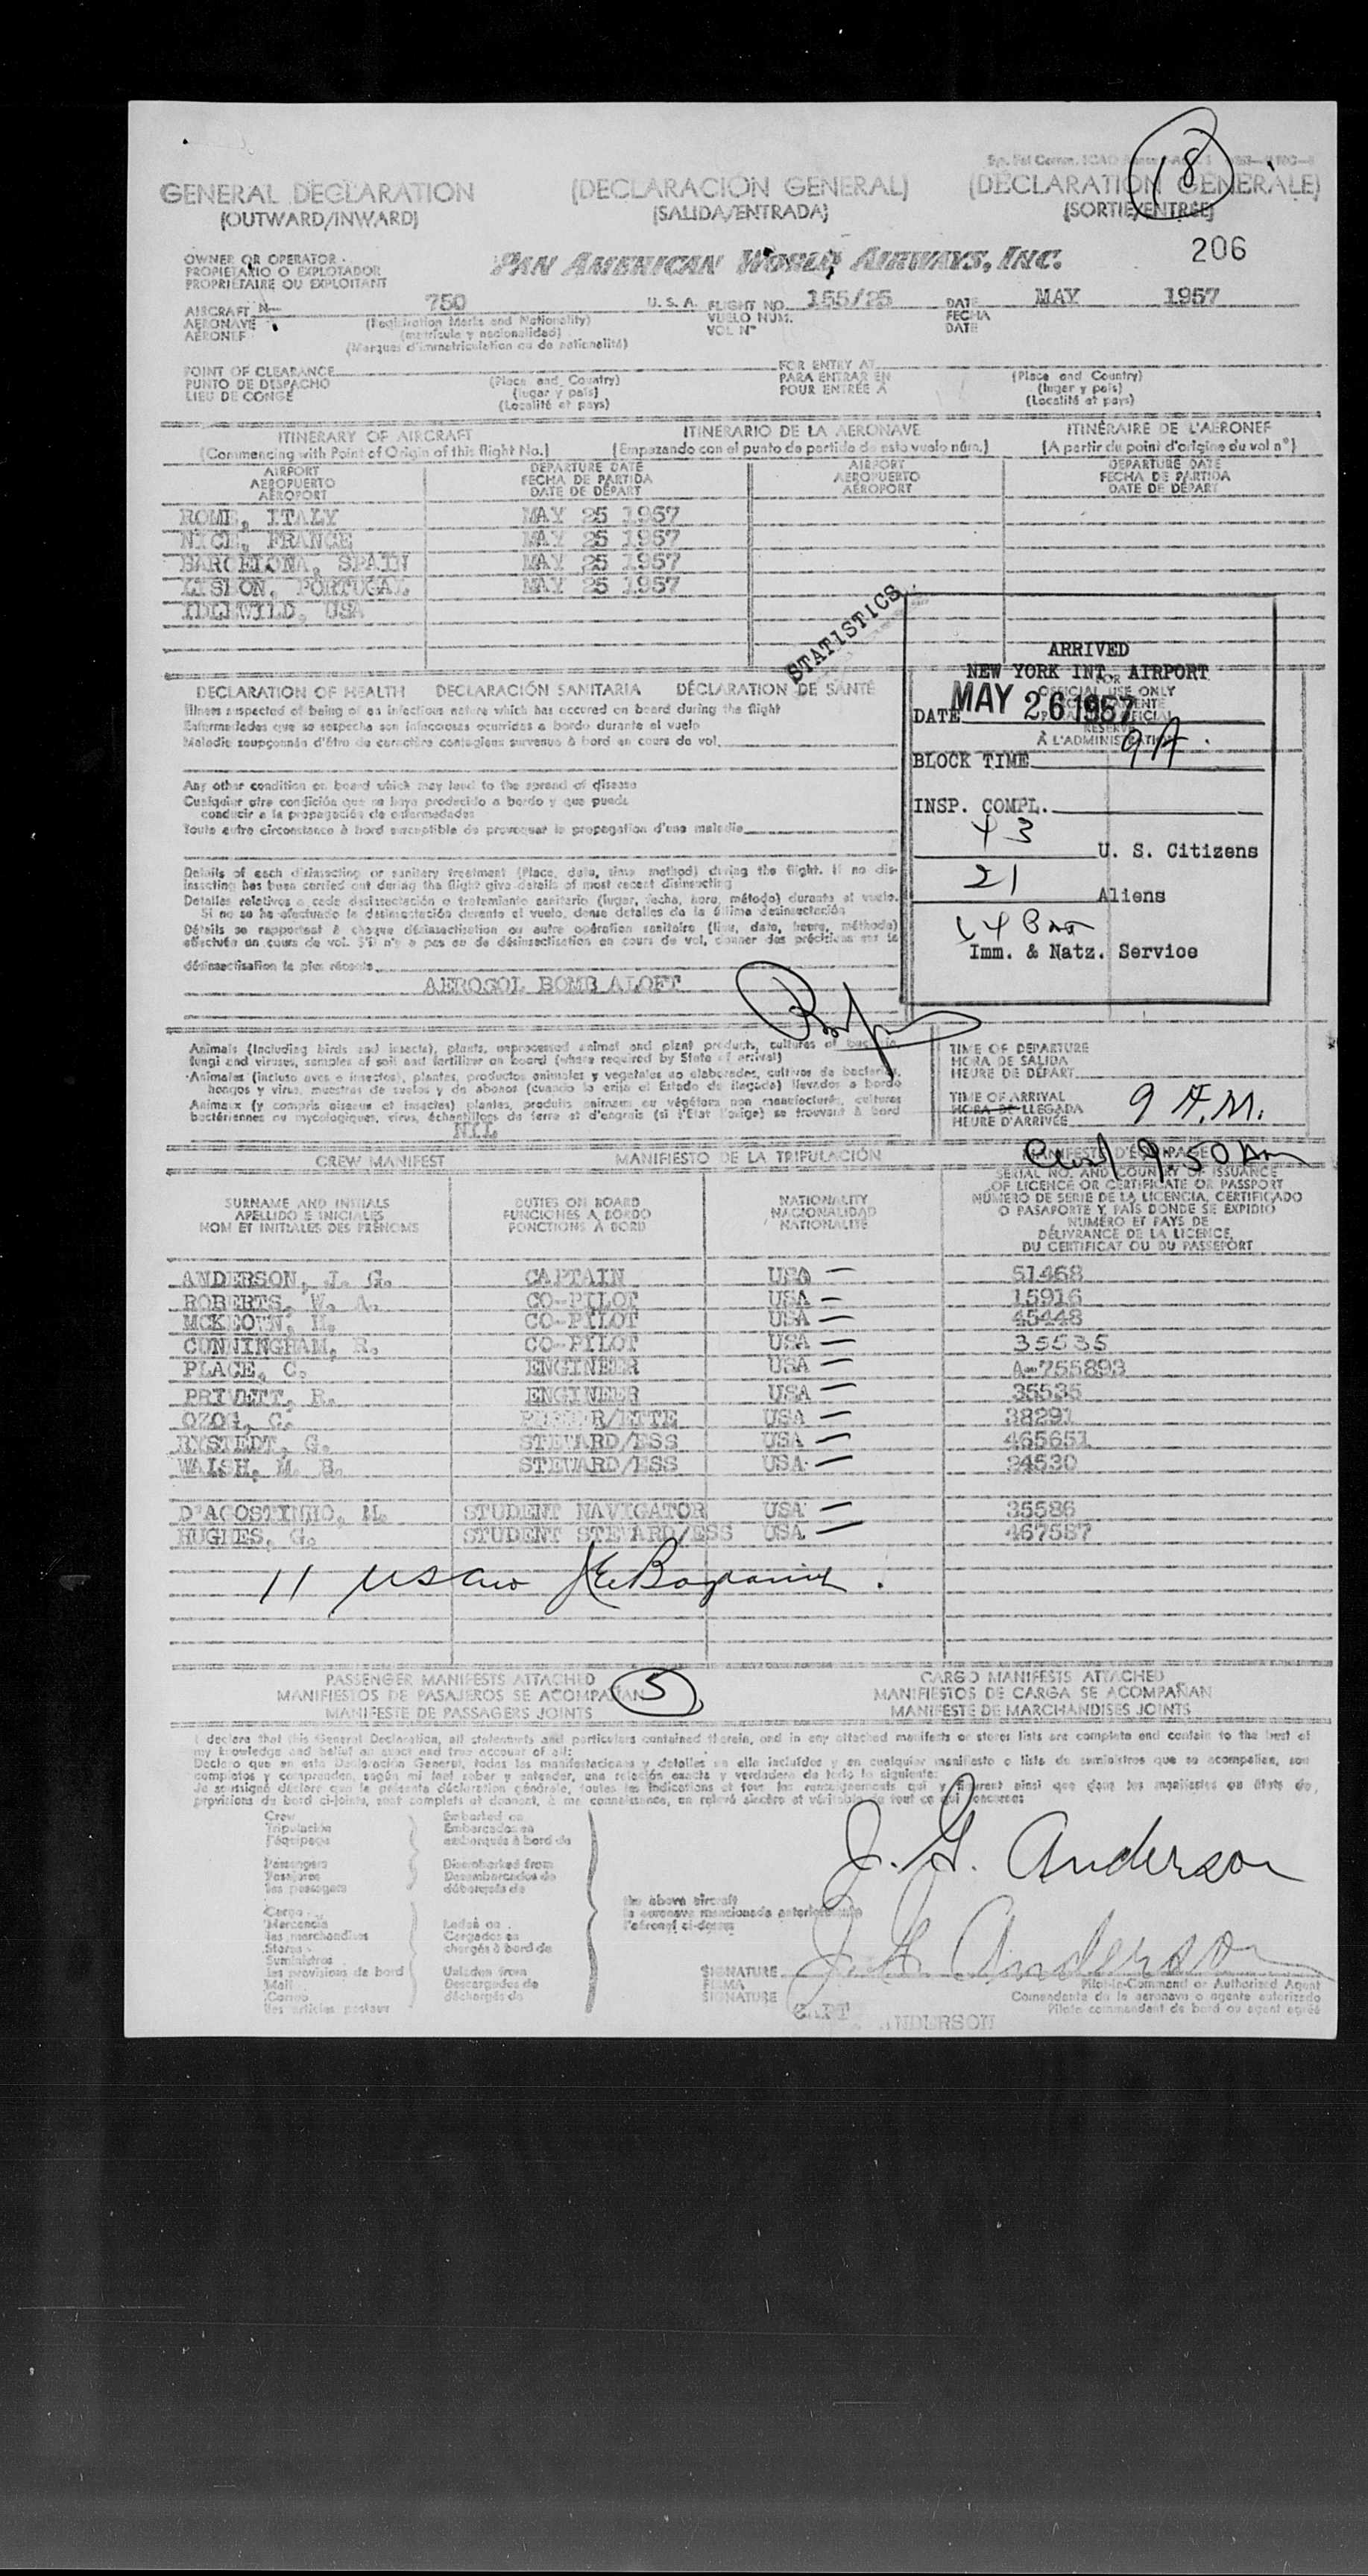 18
GENERAL DECLARATION (DECLARACIÓN GENERAL) (DÉCLARATION GÉNÉRALE)
(OUTWARD/INWARD) (SALIDA/ENTRADA) (SORTIE/ENTRÉE)
206
OWNER OR OPERATOR
PROPIETARIO O EXPLOTADOR
PROPRIÉTAIRE OU EXPLOITANT
PAN AMERICAN WORLD AIRWAYS, INC.
AIRCRAFT N— 750 U. S. A. FLIGHT NO. 155/25 DATE MAY 1957
AERONAVE (Registration Marks and Nationality) VUELO NUM. FECHA
AÉRONEF (matrícula y nacionalidad) VOL N° DATE
(Marques d'immatriculation ou de nationalité)
POINT OF CLEARANCE FOR ENTRY AT
PUNTO DE DESPACHO (Place and Country) PARA ENTRAR EN (Place and Country)
LIEU DE CONGÉ (lugar y país) POUR ENTRÉE À (lugar y país)
(Localité et pays) (Localité et pays)
ITINERARY OF AIRCRAFT ITINERARIO DE LA AERONAVE ITINÉRAIRE DE L'AÉRONEF
(Commencing with Point of Origin of this flight No.) (Empezando con el punto de partida de este vuelo núm.) (A partir du point d'origine du vol n°)
AIRPORT DEPARTURE DATE AIRPORT DEPARTURE DATE
AEROPUERTO FECHA DE PARTIDA AEROPUERTO FECHA DE PARTIDA
AÉROPORT DATE DE DÉPART AÉROPORT DATE DE DÉPART
ROME, ITALY MAY 25 1957
NICE, FRANCE MAY 25 1957
BARCELONA, SPAIN MAY 25 1957
LISBON, PORTUGAL MAY 25 1957
IDLEWILD, USA
STATISTICS
ARRIVED
NEW YORK INT. AIRPORT
FOR
OFFICIAL USE ONLY
DATE MAY 26 1957
À L'ADMINISTRATION
BLOCK TIME 9A
INSP. COMPL.
43 U. S. Citizens
21 Aliens
Imm. & Natz. Service
DECLARATION OF HEALTH DECLARACIÓN SANITARIA DÉCLARATION DE SANTÉ
Illness suspected of being of an infectious nature which has occured on board during the flight
Enfermedades que se sospecha son infecciosas ocurridas a bordo durante el vuelo
Maladie soupçonnée d'être de caractère contagieux survenue à bord en cours de vol
Any other condition on board which may lead to the spread of disease
Cualquier otra condición que se haya producido a bordo y que pueda
conducir a la propagación de enfermedades
Toute autre circonstance à bord susceptible de provoquer la propagation d'une maladie
Details of each disinsecting or sanitary treatment (Place, date, time method) during the flight. If no dis-
insecting has been carried out during the flight give details of most recent disinsecting
Detalles relativos a cada desinsectación o tratamiento sanitario (lugar, fecha, hora, método) durante el vuelo.
Si no se ha efectuado la desinsectación durante el vuelo, dense detalles de la última desinsectación
Détails se rapportant à chaque désinsectisation ou autre opération sanitaire (lieu, date, heure, méthode)
effectuée en cours de vol. S'il n'y a pas eu de désinsectisation en cours de vol, donner des précisions sur la
désinsectisation la plus récente
AEROSOL BOMB ALOFT
Animals (Including birds and insects), plants, unprocessed animal and plant products, cultures of bacteria,
fungi and viruses, samples of soil and fertilizer on board (where required by State of arrival)
Animales (incluso aves e insectos), plantas, productos animales y vegetales no elaborados, cultivos de bacterias,
hongos y virus, muestras de suelos y de abonos (cuando lo exija el Estado de llegada) llevados a bordo
Animaux (y compris oiseaux et insectes) plantes, produits animaux ou végétaux non manufacturés, cultures
bactériennes ou mycologiques, virus, échantillons de terre et d'engrais (si l'État l'exige) se trouvant à bord
NIL
TIME OF DEPARTURE
HORA DE SALIDA
HEURE DE DÉPART
TIME OF ARRIVAL
HORA DE LLEGADA
HEURE D'ARRIVÉE
9 A.M.
9:50 Am
CREW MANIFEST MANIFIESTO DE LA TRIPULACIÓN MANIFESTE D'ÉQUIPAGE
SURNAME AND INITIALS DUTIES ON BOARD NATIONALITY
APELLIDO E INICIALES FUNCIONES A BORDO NACIONALIDAD
NOM ET INITIALES DES PRÉNOMS FONCTIONS À BORD NATIONALITÉ
SERIAL NO. AND COUNTRY OF ISSUANCE
OF LICENCE OR CERTIFICATE OR PASSPORT
NÚMERO DE SERIE DE LA LICENCIA, CERTIFICADO
O PASAPORTE Y PAÍS DONDE SE EXPIDIÓ
NUMÉRO ET PAYS DE
DÉLIVRANCE DE LA LICENCE,
DU CERTIFICAT OU DU PASSEPORT
ANDERSON, J. G. CAPTAIN USA — 51468
ROBERTS, W. A. CO-PILOT USA — 15916
MCKEOWN, H. CO-PILOT USA — 45448
CUNNINGHAM, R. CO-PILOT USA — 35535
PLACE, C. ENGINEER USA — A-755893
PRIVETT, R. ENGINEER USA — 35535
OZOG, C. USA — 38291
RYSTEDT, G. STEWARD/ESS USA — 465651
WALSH, M. B. STEWARD/ESS USA — 24530
D'AGOSTINHO, M. STUDENT NAVIGATOR USA — 35586
HUGHES, G. STUDENT STEWARD/ESS USA — 467587
11
PASSENGER MANIFESTS ATTACHED CARGO MANIFESTS ATTACHED
MANIFIESTOS DE PASAJEROS SE ACOMPAÑAN 5 MANIFIESTOS DE CARGA SE ACOMPAÑAN
MANIFESTE DE PASSAGERS JOINTS MANIFESTE DE MARCHANDISES JOINTS
I declare that this General Declaration, all statements and particulars contained therein, and in any attached manifests or stores lists are complete and contain to the best of
my knowledge and belief an exact and true account of all:
Declaro que en esta Declaración General, todas las manifestaciones y detalles en ella incluidos y en cualquier manifiesto o lista de suministros que se acompañen, son
completos y comprenden, según mi leal saber y entender, una relación exacta y verdadera de todo lo siguiente:
Je soussigné déclare que la présente déclaration générale, toutes les indications et tous les renseignements qui y figurent ainsi que dans les manifestes ou états de
provisions de bord ci-joints, sont complets et donnent, à ma connaissance, un relevé sincère et véritable de tout ce qui concerne:
Crew Embarked on
Tripulación Embarcados en
l'équipage embarqués à bord de
Passengers Disembarked from
Pasajeros Desembarcados de
les passagers débarqués de
Cargo
Mercancía Laden on
les marchandises Cargados en
Stores chargés à bord de
Suministros
les provisions de bord Unladen from
Mail Descargados de
Correo déchargés de
les articles postaux
the above aircraft
la aeronave mencionada anteriormente
l'aéronef ci-dessus
J. G. Anderson
J. G. Anderson
SIGNATURE
FIRMA
SIGNATURE
Pilot-in-Command or Authorized Agent
Comandante de la aeronave o agente autorizado
Pilote commandant de bord ou agent agréé
CAPT ANDERSON